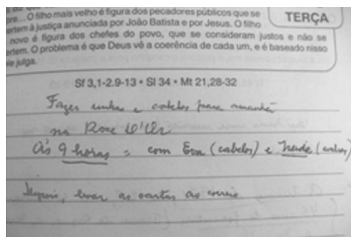 pre... O filho mais velho é figura dos pecadores públicos que se
ertem à justiça anunciada por João Batista e por Jesus. O filho
novo é figura dos chefes do povo, que se consideram justos e não se
ertem. O problema é que Deus vê a coerência de cada um, e é baseado nisso
ele julga.
TERÇA
Sf 3,1-2.9-13 • Sl 34 • Mt 21,28-32
Fazer unhas e cabelos para amanhã
na Rose
Às 9 horas = com Eva (cabelo) e (unhas)
Depois, levar as cartas ao correio